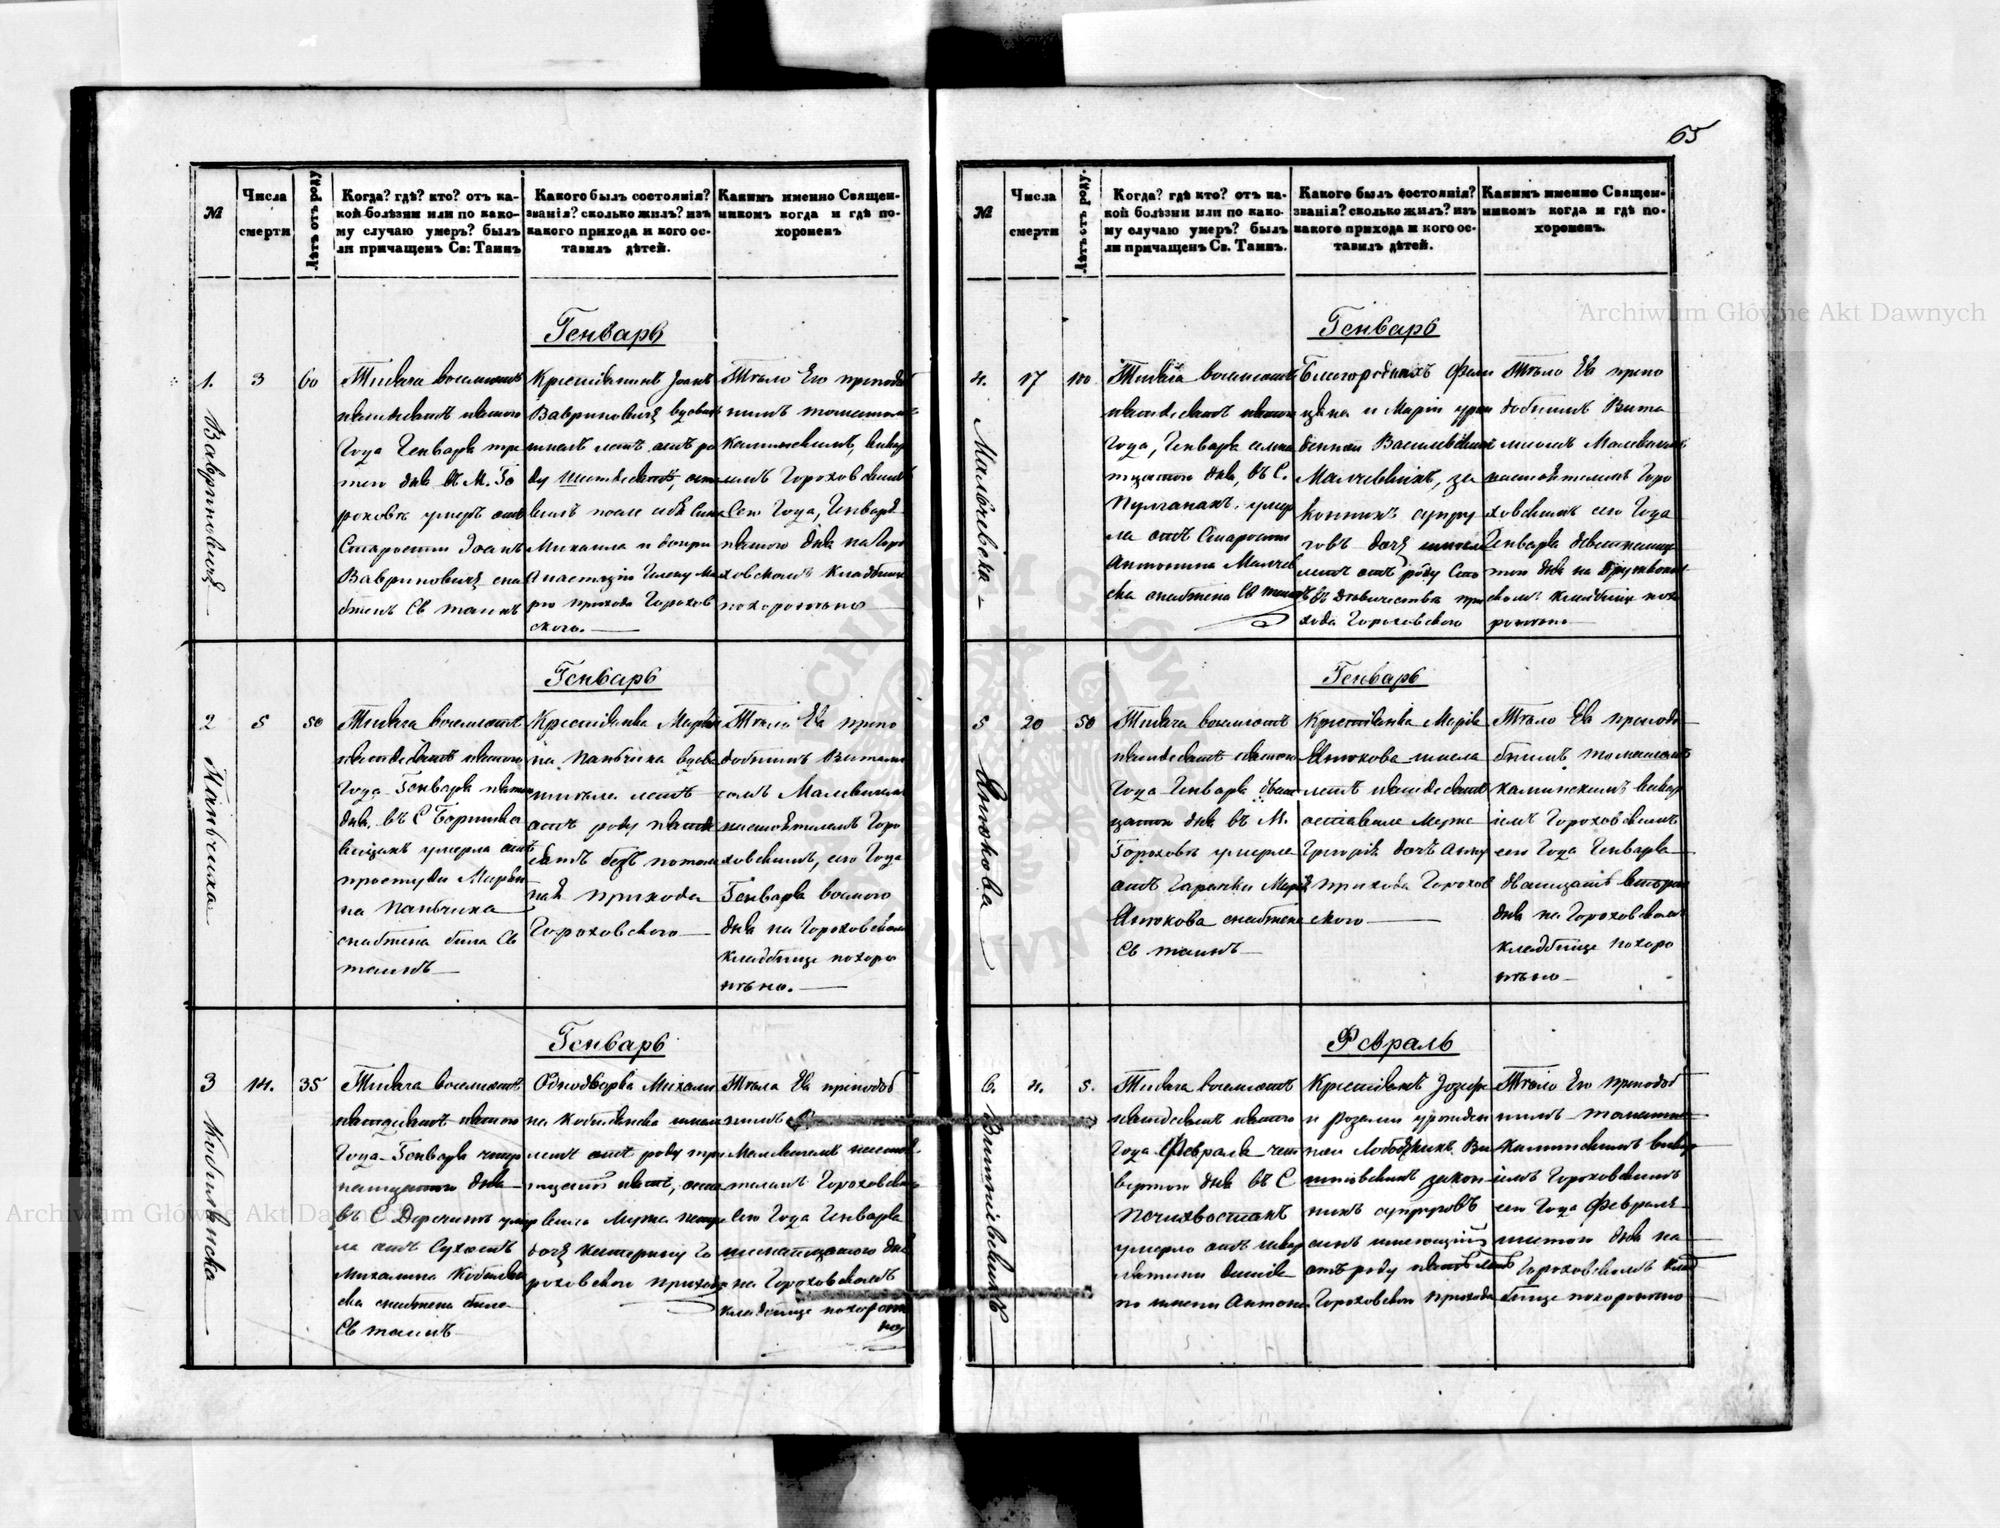 65
№
Числа
смерти
Лѣтъ отъ роду
Когда? гдѣ? кто? отъ ка-
кой болѣзни или по како-
му случаю умеръ? былъ
ли причащенъ Св: Таинъ
Какого былъ состоянія?
званія? сколько жилъ? изъ
какого прихода и кого ос-
тавилъ дѣтей.
Какимъ именно Священ-
никомъ когда и гдѣ по-
хороненъ
Генварь
1.
3
60
Вавриновичъ
Тысяча восемьсотъ
пятьдесятъ пятого
Года Генваря тре
тего дня въ М. Го
роховѣ умеръ отъ
Старости Іоанъ
Вавриновичъ сна
бженъ Св таинъ
Крестьянинъ Іоанъ
Вавриновичъ вдовецъ
имелъ летъ отъ ро
ду шестьдесятъ, оста
вилъ после себя Сына
Михаила и дочери
Анастазію Гелену Ма
рю прихода Горохов
ского.
Тѣло Его преподоб
нымъ
Каминскимъ, викар
імъ Гороховскимъ
Сего Года, Генваря
пятого дня на Горо
ховскомъ кладбище
похоронено
Генварь
2
5
50
Паньчиха
Тысяча восемьсотъ
пятьдесятъ пятого
Года Генваря пятого
дня, въ С
умерла отъ
простуды Марья
на Паньчиха
снабжена была Св
таинъ
Крестьянка Марья
на Паньчиха вдова
имела летъ
отъ роду пятьде
сятъ безъ потом
прихода
Гороховского
Тѣло Ея препо
добнымъ Витали
сомъ Малевичемъ
настоятелемъ Горо
ховскимъ, сего Года
Генваря восмого
дня на Гороховском
кладбище похоро
нено.
Генварь
3
14.
35
Кобылянска
Тысяча восемьсотъ
пятьдесятъ пятого
Года Генваря четыр
натцатого дня
въ С Дерчинъ умер
ла отъ Сухотъ
Михалина Кобылян
ска снабжена была
Св таинъ
Однодворка Михали
на Кобылянска имела
летъ отъ роду три
тцать пять, оста
вила Мужа
дочь Катерину Го
роховского прихода
Тѣла Ея преподоб
нымъ
Малевичемъ настоя
телемъ Гороховским
Сего Года Генваря
шеснатцатого дня
на Гороховскомъ
кладбище похороне
но
№
Числа
смерти
Лѣтъ отъ роду.
Когда? гдѣ кто? отъ ка-
кой болѣзни или по како-
му случаю умеръ? былъ
ли причащенъ Св. Таинъ.
Какого былъ состоянія?
званія? сколько жилъ? изъ
какого прихода и кого ос-
тавилъ дѣтей.
Какимъ именно Священ-
никомъ когда и гдѣ по-
хороненъ.
Генварь
4.
17
100
Мальчевска
Тысяча восемьсотъ
пятьдесятъ пятого
Года, Генваря семна
тцатого дня, въ С.
Пулганахъ, умер
ла отъ Старости
Антонина Малчев
ска снабжена Св таинъ
Благородныхъ Фели
цяна и Маріи урож
денной Василевскихъ
Малчевскихъ, за
конныхъ супру
говъ дочь имела
летъ отъ роду Сто
въ девичестве при
хода Гороховского
Тѣло Ея препо
добнымъ Вита
лисомъ Малевичемъ
настоятелемъ Горо
ховскимъ сего Года
Генваря девятнатца
того дня на
скомъ кладбище похо
ронено
Генварь
5
20
50
Янюкова
Тысяча восемьсотъ
пятьдесятъ пятого
Года Генваря двад
цатого дня въ М.
Гороховѣ умерла
отъ Гарячки Марія
Янюкова снабжена
Св таинъ
Крестьянка Марія
Янюкова имела
летъ пятьдесятъ
оставила Мужа
Григорія дочь Анну
прихода Горохов
ского
Тѣло Ея преподо
бнымъ томашомъ
каминскимъ викар
імъ Гороховскимъ
сего Года Генваря
двадцать второго
дня на Гороховскомъ
кладбище похоро
нено
Февраль
6.
4.
5.
Вишніовскихъ
Тысяча восемьсотъ
пятьдесятъ пятого
Года Февраля чет
вертого дня въ С
Печихвостахъ
умерло отъ шкар
лятины дитя
по имени Антони
Крестьянъ Іозефа
и Розаліи урожден
ной Лободзкихъ Ви
шніовскихъ закон
ныхъ супруговъ
сынъ имеющій
отъ роду пять летъ
Гороховского прихода
Тѣло Его преподоб
нымъ томашомъ
каминскимъ викар
імъ Гороховскимъ
сего Года Февраля
шестого дня на
Гороховскомъ клад
бище похоронено
Archiwum Główne Akt Dawnych
Archiwum Główne Akt Dawnych